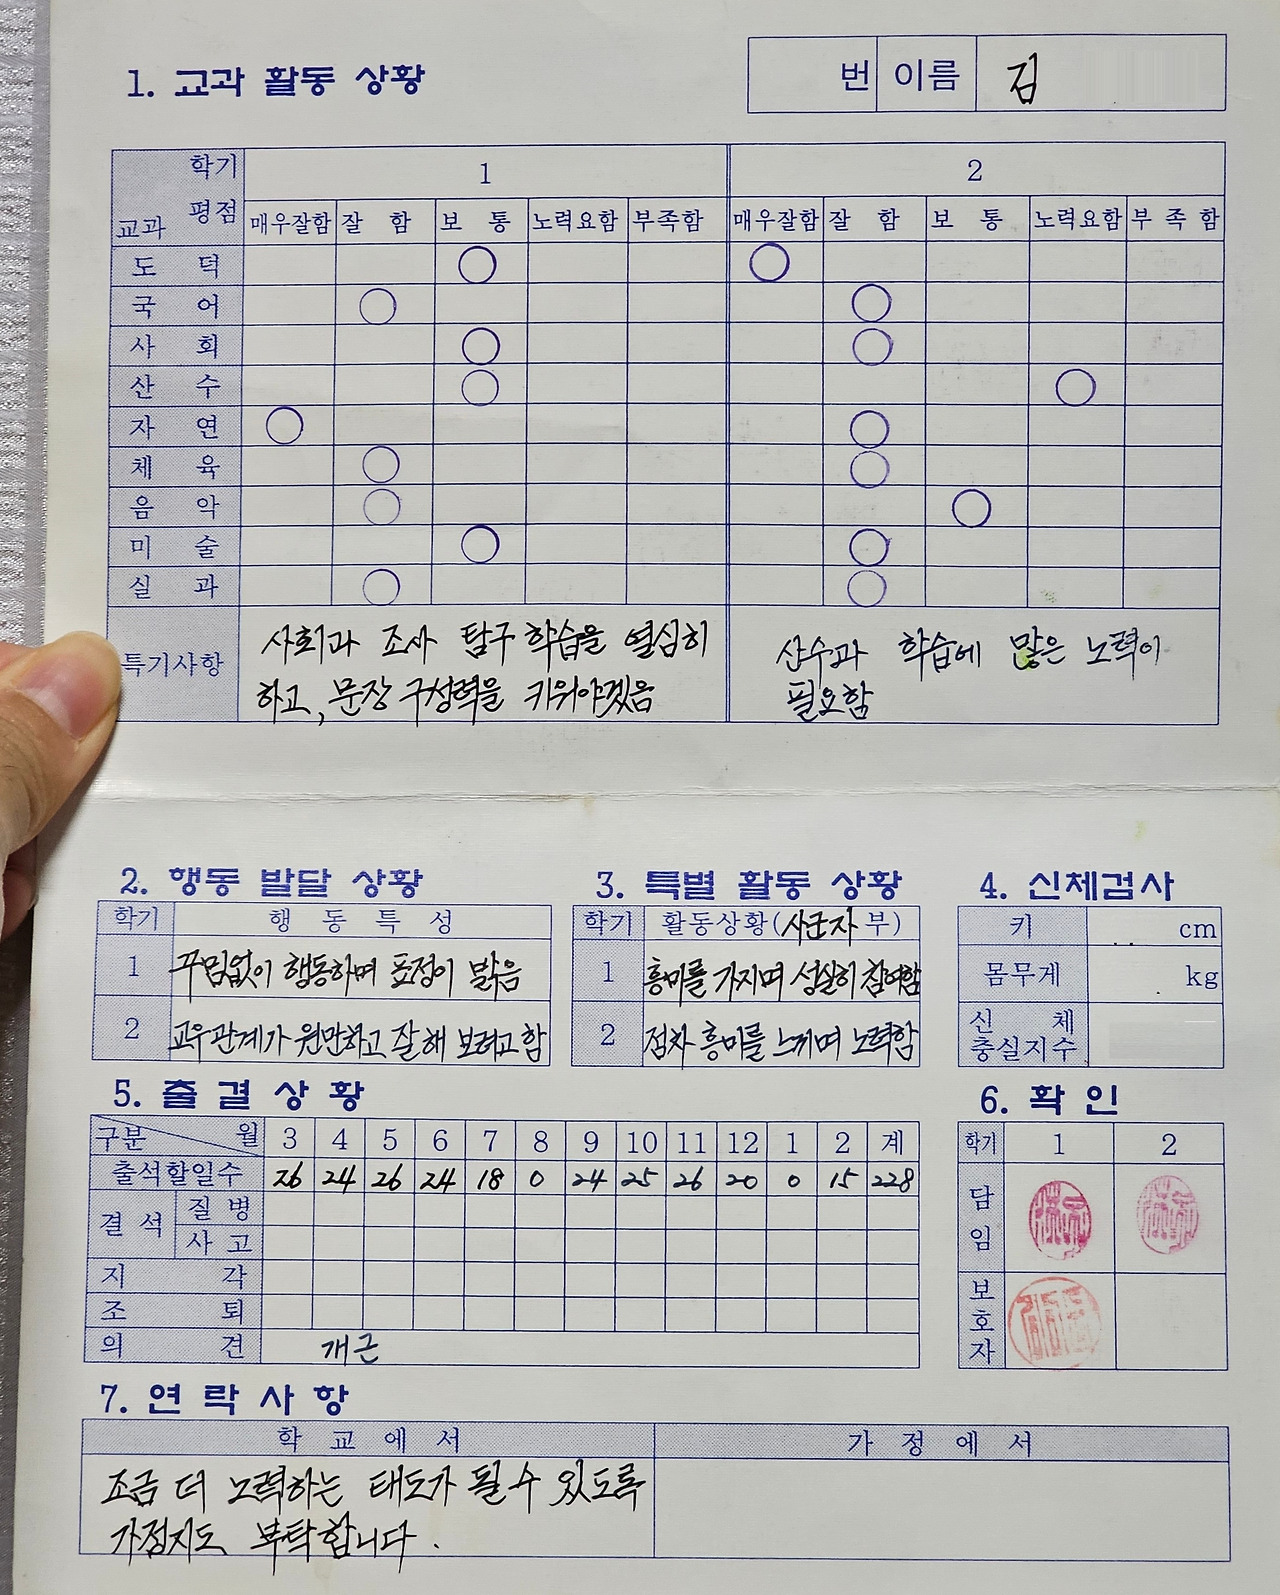 1. 교과 활동 상황
번 이름 김
학기 1 2
평점
교과 매우잘함 잘 함 보 통 노력요함 부족함 매우잘함 잘 함 보 통 노력요함 부 족 함
도 덕 ○ ○
국 어 ○ ○
사 회 ○ ○
산 수 ○ ○
자 연 ○ ○
체 육 ○ ○
음 악 ○ ○
미 술 ○ ○
실 과 ○ ○
특기사항
사회과 조사 탐구 학습을 열심히
하고, 문장 구성력을 키워야겠음
산수과 학습에 많은 노력이
필요함
2. 행동 발달 상황
학기 행 동 특 성
1 꾸밈없이 행동하며 표정이 밝음
2 교우관계가 원만하고 잘해 보려고 함
3. 특별 활동 상황
학기 활동상황(사군자 부)
1 흥미를 가지며 성실히 참여함
2 점차 흥미를 느끼며 노력함
4. 신체검사
키 cm
몸무게 kg
신 체
충실지수
5. 출 결 상 황
구분 월 3 4 5 6 7 8 9 10 11 12 1 2 계
출석할일수 26 24 26 24 18 0 24 25 26 20 0 15 228
결 석 질 병
사 고
지 각
조 퇴
의 견 개근
6. 확 인
학기 1 2
담임
보호자
7. 연 락 사 항
학 교 에 서 가 정 에 서
조금 더 노력하는 태도가 될 수 있도록
가정지도 부탁합니다.